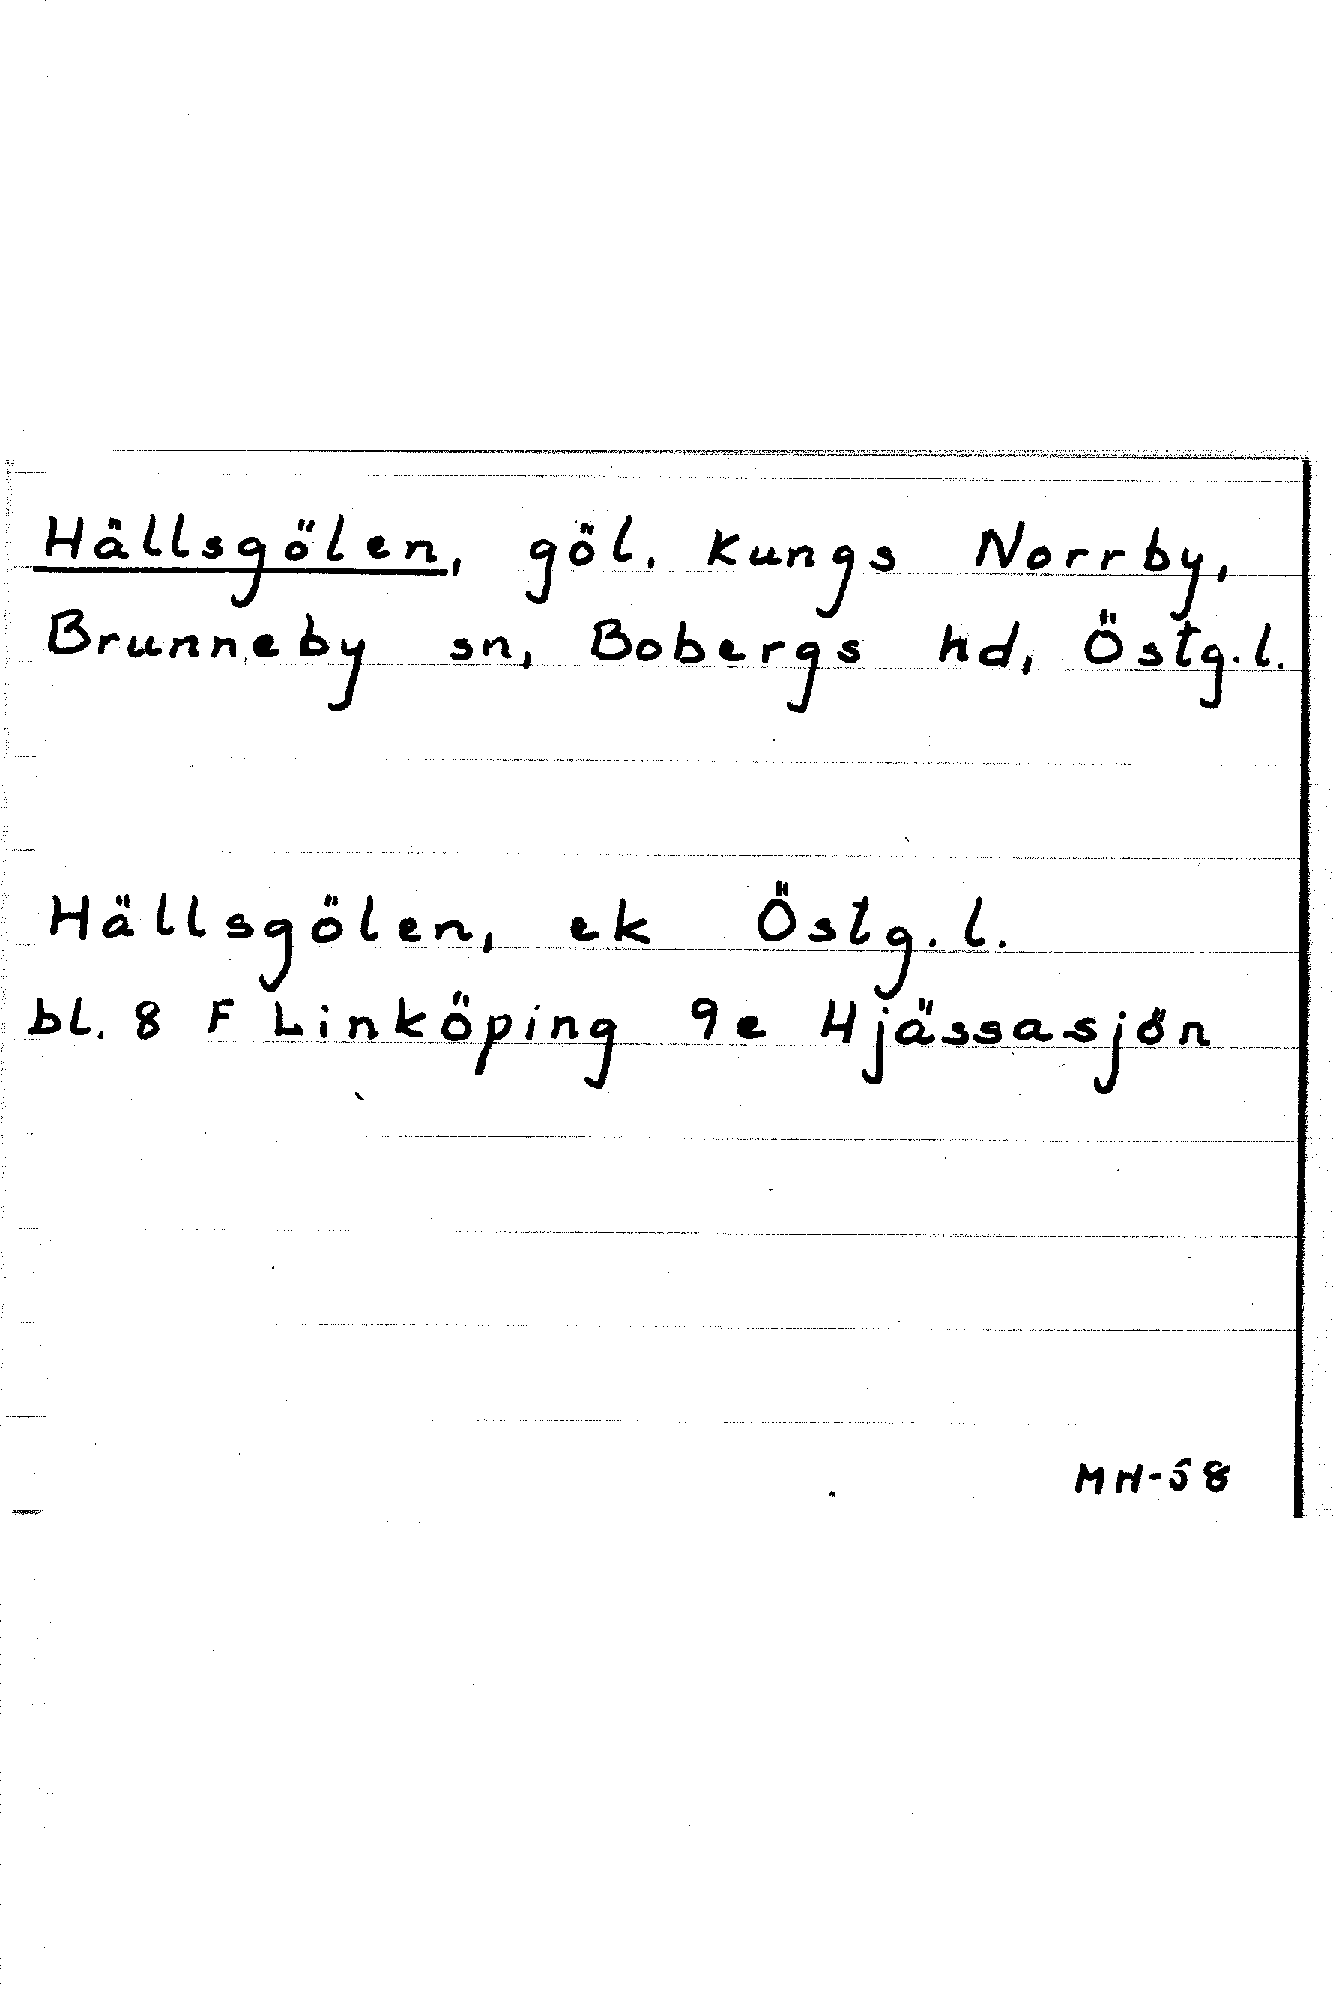 Hällsgölen, göl. Kungs Norrby,
Brunneby sn, Bobergs hd, Östg.l.
Hällsgölen, ek Östg.l.
bl. 8 F Linköping 9e Hjässasjön
MH-58